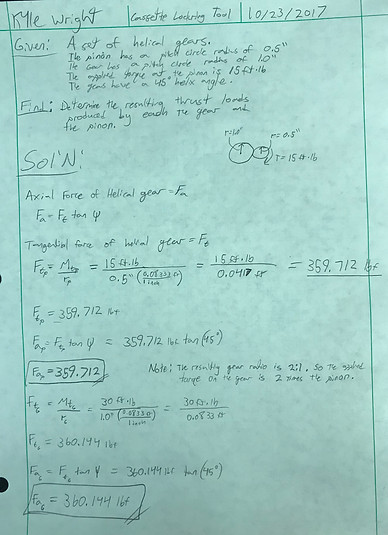 Kyle Wright | Cassette Lockring Tool | 10/23/2017
Given: A set of helical gears.
The pinon has a pitch circle radius of 0.5"
The Gear has a pitch circle radius of 1.0"
The applied torque at the pinon is 15 ft·lb
The gears have a 45° helix angle.
Find: Determine the resulting thrust loads
produced by each the gear and
the pinon.
r=1.0" r=0.5"
T=15 ft·lb
Sol'N:
Axial Force of Helical gear = Fa
Fa = Ft tan ψ
Tangential force of helical gear = Ft
Ftp = Mtp/rp = 15 ft·lb / 0.5" (0.0833 ft / 1 inch) = 15 ft·lb / 0.0417 ft = 359.712 lbf
Ftp = 359.712 lbf
Fap = Ftp tan ψ = 359.712 lbf tan(45°)
Fap = 359.712
Note: The resulting gear ratio is 2:1. So the applied
torque on the gear is 2 times the pinon.
Ftg = Mtg/rg = 30 ft·lb / 1.0" (0.0833 ft / 1 inch) = 30 ft·lb / 0.0833 ft
Ftg = 360.144 lbf
Fag = Ftg tan ψ = 360.144 lbf tan(45°)
Fag = 360.144 lbf